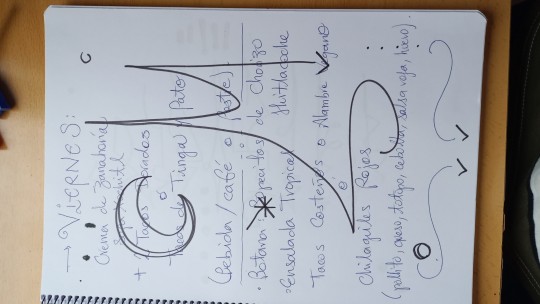 → VIERNES:
Crema de zanahoria
+ Tacos
Tacos de Tinga / Pato
(Bebida / café o postre).
· Botana: de chorizo
· Ensalada Tropical Huitlacoche
Tacos Costeños o Alambre Vegano
Chilaquiles Rojos
(pollito, queso, totopo, cebolla, salsa roja, huevo).